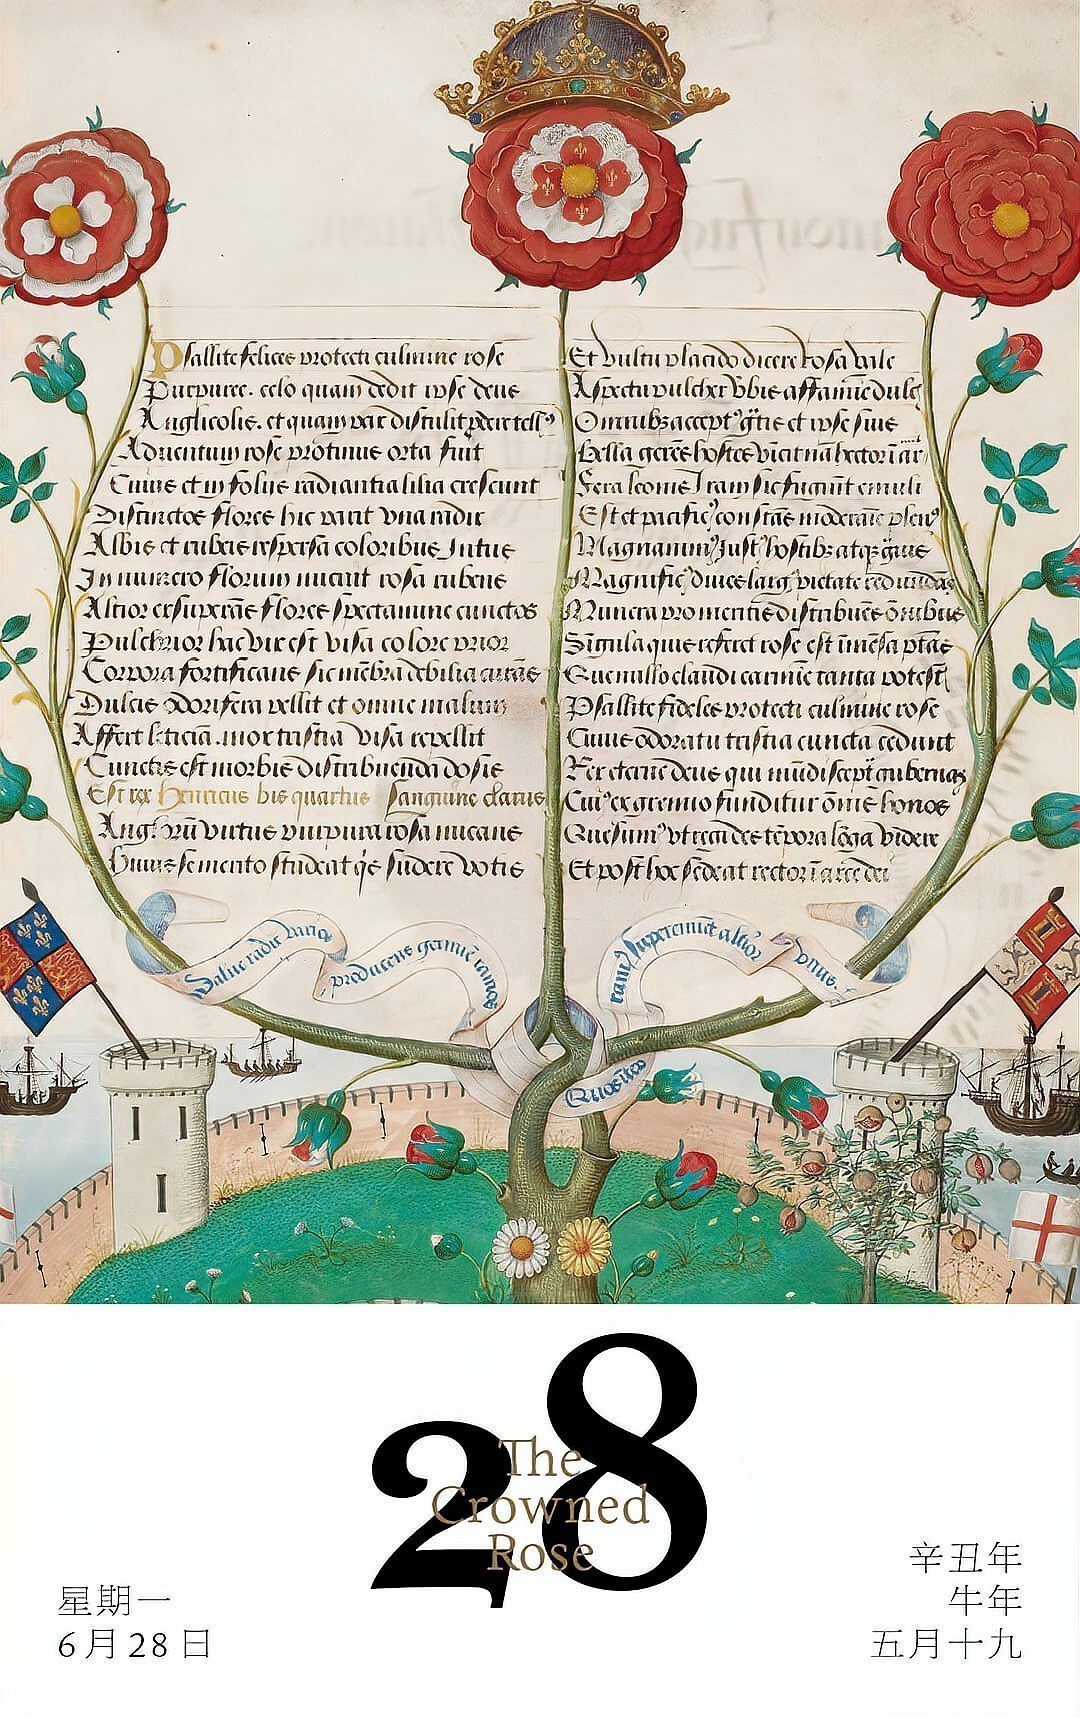 Psallite felices protecti culmine rose
Purpuree. celo quam dedit ipse deus
Anglicolis. et quam distulit
Aduentum rose protinus orta fuit
Cuius et in folijs radiantia lilia crescunt
Distinctos flores hic parit vna radix
Albis et rubeis respersa coloribus Intus
In numero florum micuit rosa rubens
Altior exsuperans flores spectamine cunctos
Pulchrior hac vix est visa colore prior
Corpora fortificans sic membra debilia curans
Dulcis Odorifera pellit et omne malum
Affert leticiam. mox tristia visa repellit
Cunctis est morbis distribuenda dosis
Est rex Henricus bis quartus Sanguine clarus
virtus purpura rosa micans
Huius memento studeat votis
Et vultu placido dicere rosa vale
Aspectu pulcher
Omnibus accept9 et ipse suis
Bella gerens hostes vicit
Fera leonis Iram sic fugiunt emuli
Est et pacific9 constans
Magnanim9 Just9 hostibus atque
Magnific9 diues larg9 pietate redundans
Munera pro meritis distribuens omnibus
Singula que referet rose est
Que nullo claudi carmine tanta potest
Psallite fideles protecti culmine rose
Cuius odoratu tristia cuncta cedunt
Rex eterne deus qui mundi sceptra gubernas
Cui9 ex gremio funditur omnis honos
Quesum9 vt tempora longa videre
Et post hec sedeat rector in arce dei
Salue radix varios
producens germine ramos
Quos inter
ram9 supereminet altior
vnus.
28
The
Crowned
Rose
辛丑年
星期一
牛年
6月28日
五月十九